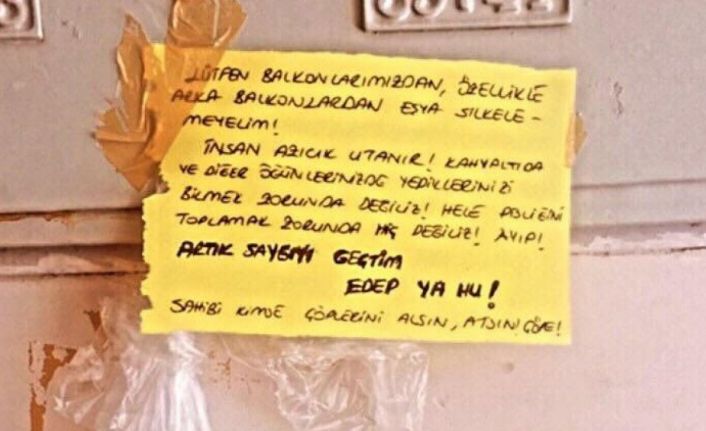 LÜTFEN BALKONLARIMIZDAN, ÖZELLİKLE
ARKA BALKONLARDAN EŞYA SİLKELE-
MEYELİM!
İNSAN AZICIK UTANIR! KAHVALTIDA
VE DİĞER ÖĞÜNLERİNİZDE YEDİKLERİNİZİ
BİLMEK ZORUNDA DEĞİLİZ! HELE
TOPLAMAK ZORUNDA HİÇ DEĞİLİZ! AYIP!
ARTIK SAYGIYI GEÇTİM
EDEP YA HU!
SAHİBİ KİMSE ÇÖPLERİNİ ALSIN, ATSIN ÇÖPE!